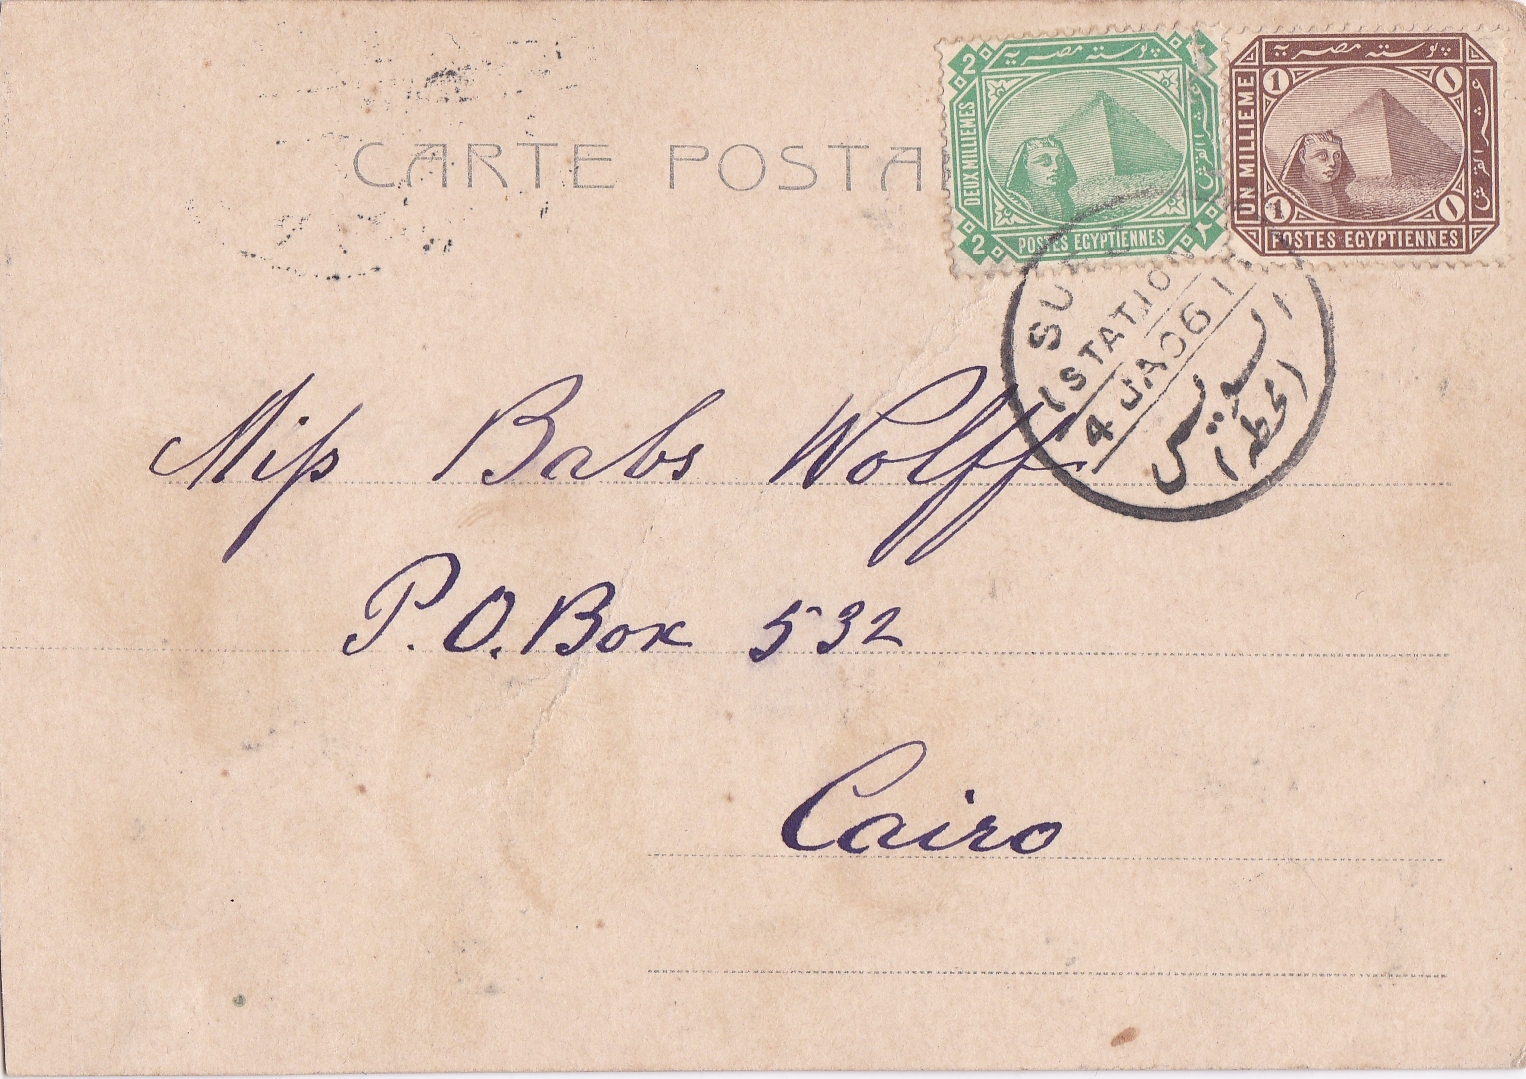 CARTE POSTA
2
پوسته مصريه
DEUX MILLIEMES
2
POSTES EGYPTIENNES
پوسته مصريه
1
١
UN MILLIEME
عشر القرش
1
١
POSTES EGYPTIENNES
SU
(STATION
4 JA 06 1
السويس
(محطه)
Miss Babs Wolff
P.O. Box 532
Cairo